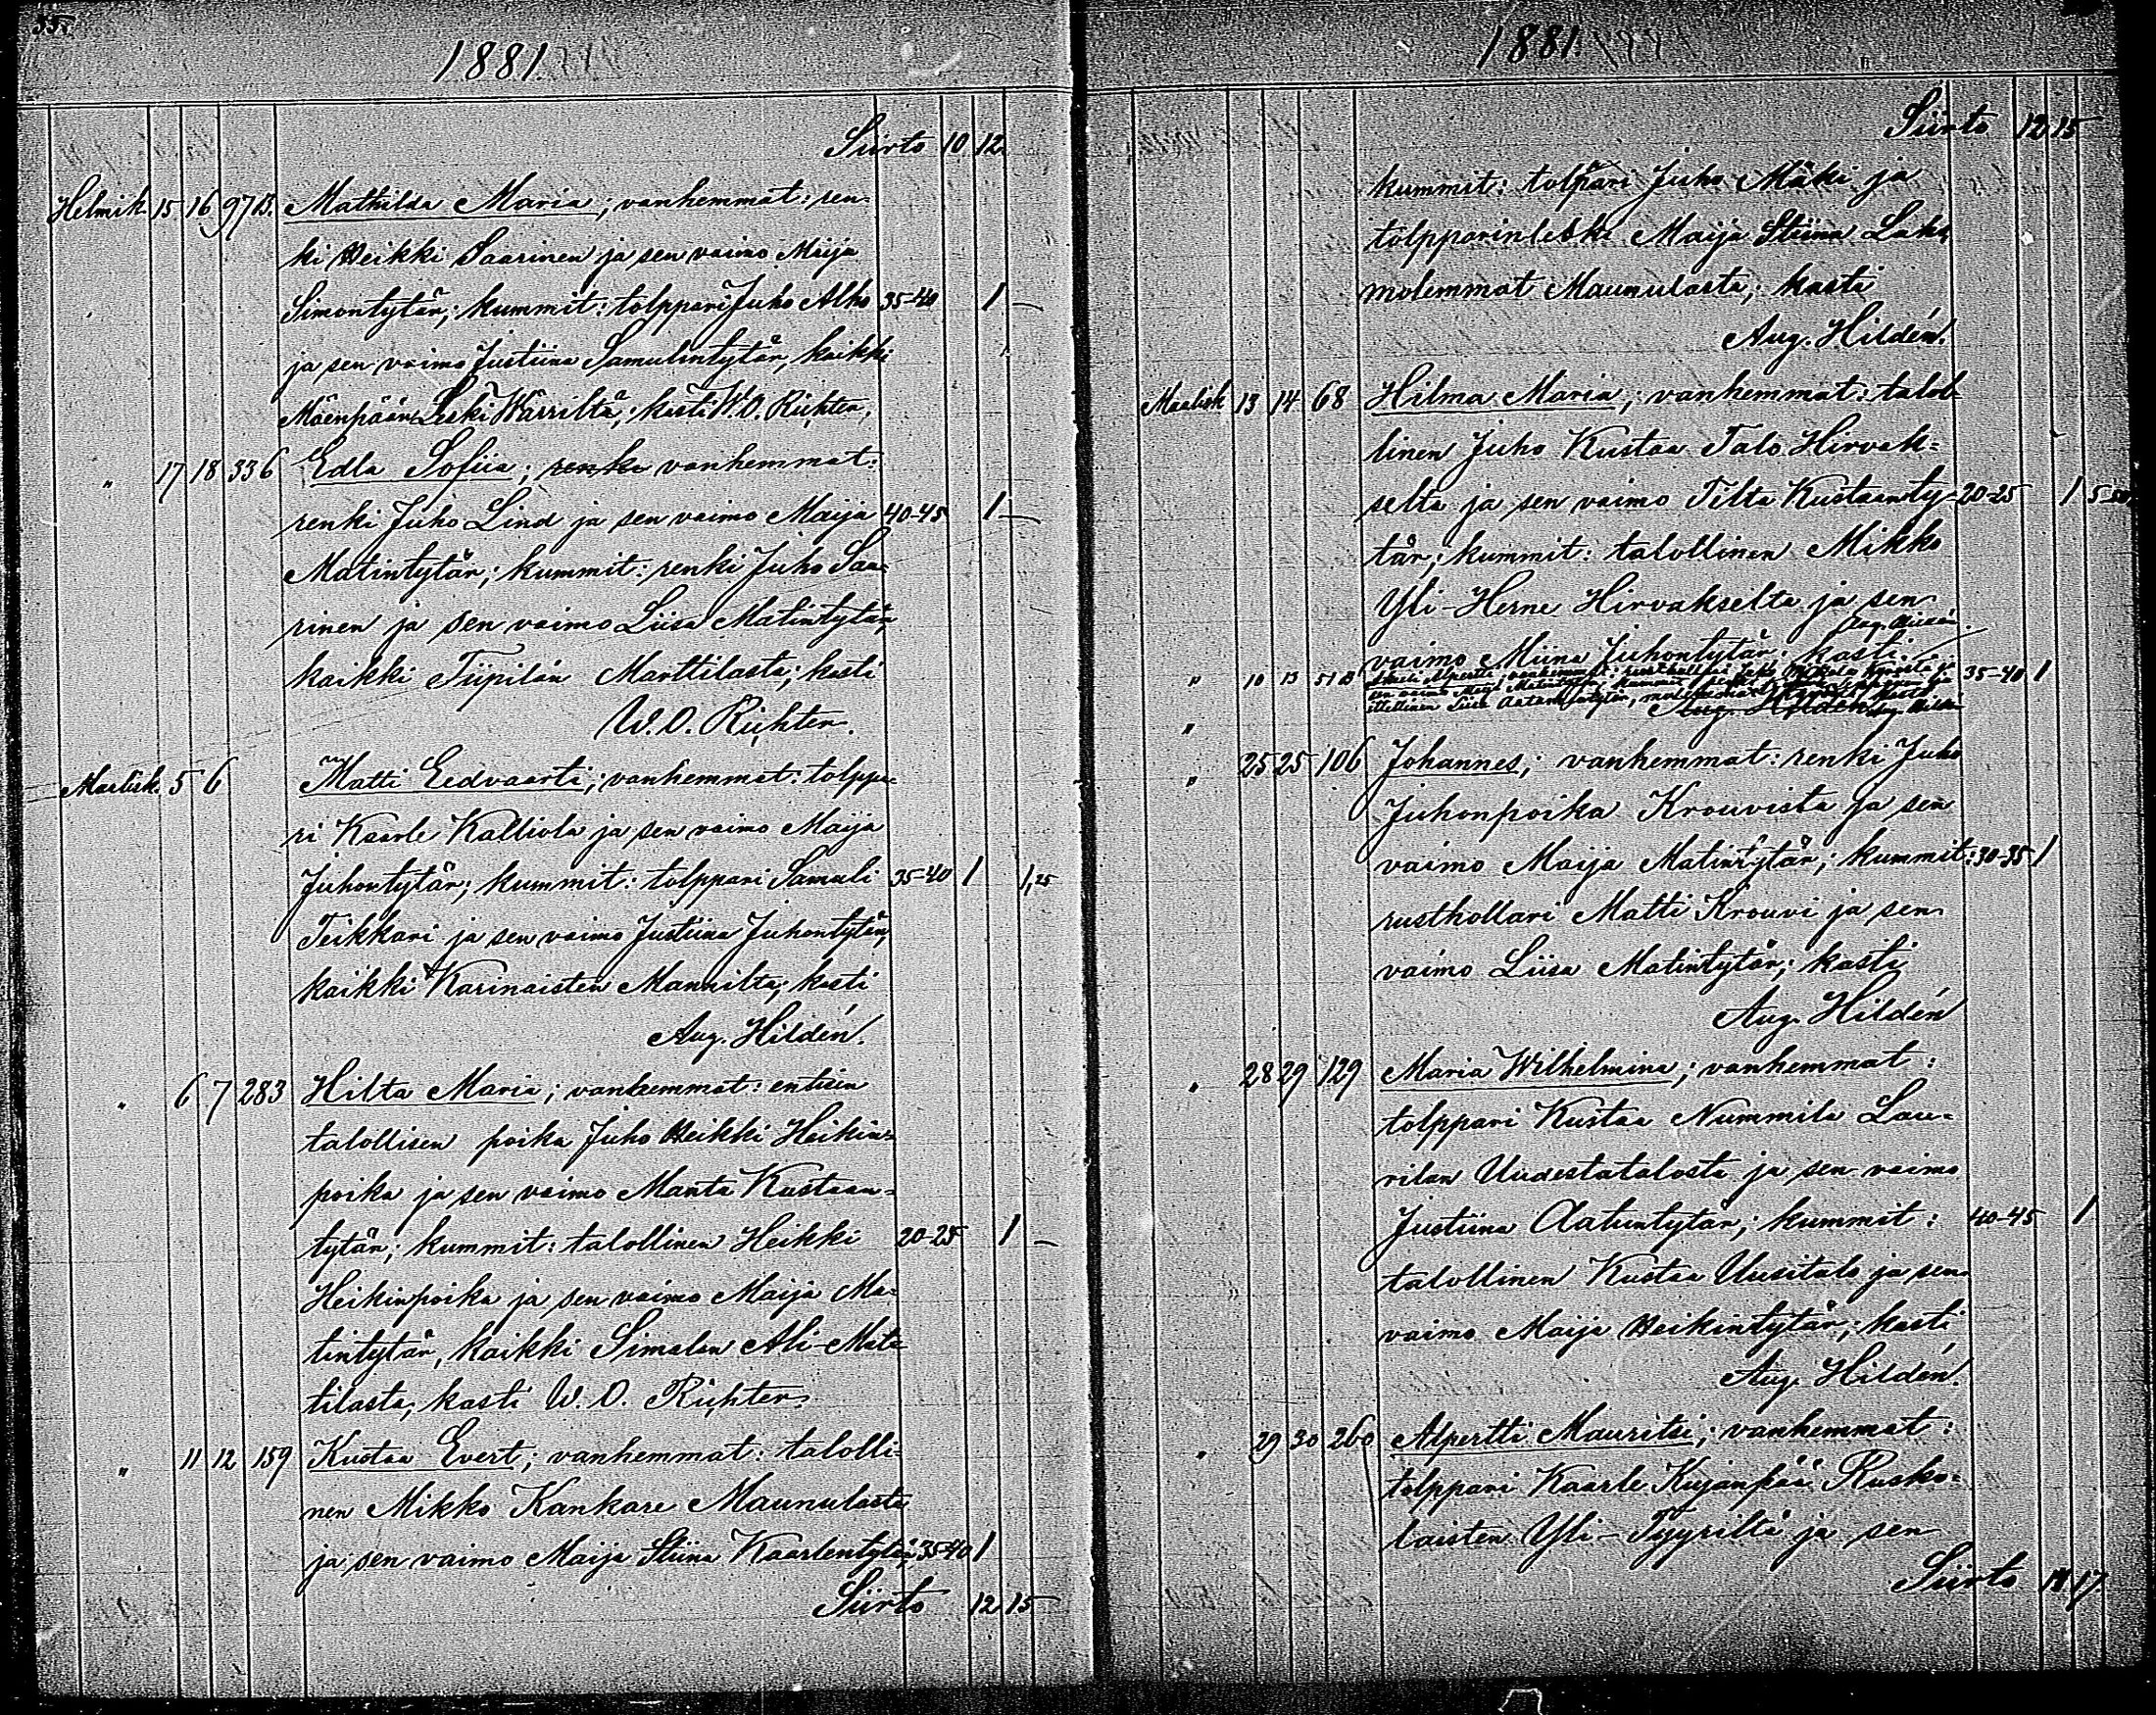 55.
1881.
Siirto 10 12.
Helmik 15 16 97 B. Mathilda Maria; vanhemmat: ren-
ki Heikki Saarinen ja sen vaimo Maija
Simontytär; kummit: tolppari Juho Alho 35-40 1 —
ja sen vaimo Justiina Samulintytär, kaikki
Mäenpään Leski Wärriltä; kasti W. O. Richter.
" 17 18 336 Edla Sofiia; renki vanhemmat:
renki Juho Lind ja sen vaimo Maija 40-45 1 —
Matintytär; kummit: renki Juho Saa-
rinen ja sen vaimo Liisa Matintytär,
kaikki Tiipilän Marttilasta; kasti
W. O. Richter.
Maalisk. 5 6 Matti Eedvaarti; vanhemmat: tolppa-
ri Kaarle Kalliola ja sen vaimo Maija
Juhontytär; kummit: tolppari Samuli 35-40 1 1,25
Teikkari ja sen vaimo Justiina Juhontytär,
kaikki Karinaisten Mannilta; kasti
Aug. Hildén.
" 6 7 283 Hilta Maria; vanhemmat: entisen
talollisen poika Juho Heikki Heikin-
poika ja sen vaimo Manta Kustaan-
tytär; kummit: talollinen Heikki 20-25 1 —
Heikinpoika ja sen vaimo Maija Ma-
tintytär, kaikki Simalan Ali-Mat-
tilasta; kasti W. O. Richter.
" 11 12 159 Kustaa Evert; vanhemmat: talolli-
nen Mikko Kankare Maunulasta
ja sen vaimo Maija Stiina Kaarlentytär; 35-40 1
Siirto 12 15
1881.
Siirto 12 15
kummit: tolpari Juho Mäki ja
tolpparinleski Maija Stiina Laks,
molemmat Maunulasta; kasti
Aug. Hildén.
Maalisk 13 14 68 Hilma Maria; vanhemmat: talol-
linen Juho Kustaa Talo Hirvak-
selta ja sen vaimo Tilta Kustaanty- 20-25 1 5-50
tär; kummit: talollinen Mikko
Yli-Herne Hirvakselta ja sen
vaimo Miina Juhontytär; kasti Aug. Hildén.
" 10 13 51 B Alpertti; vanhemmat: 35-40 1
sen vaimo Maija Matintytär; kummit:
itsellinen Liisa
" Aug. Hildén
" 25 25 106 Johannes; vanhemmat: renki Juho
Juhonpoika Krouvista ja sen
vaimo Maija Matintytär; kummit: 30-35 1
rusthollari Matti Krouvi ja sen
vaimo Liisa Matintytär; kasti
Aug. Hildén
" 28 29 129 Maria Wilhelmina; vanhemmat:
tolppari Kustaa Nummila Lau-
rilan Uudestatalosta ja sen vaimo
Justiina Aatuntytär; kummit: 40-45 1
talollinen Kustaa Uusitalo ja sen
vaimo Maija Heikintytär; kasti
Aug. Hildén.
" 29 30 260 Alpertti Mauritsi; vanhemmat:
tolppari Kaarle Kujanpää Rusko-
laisten Yli-Tyyriltä ja sen
Siirto 14 17